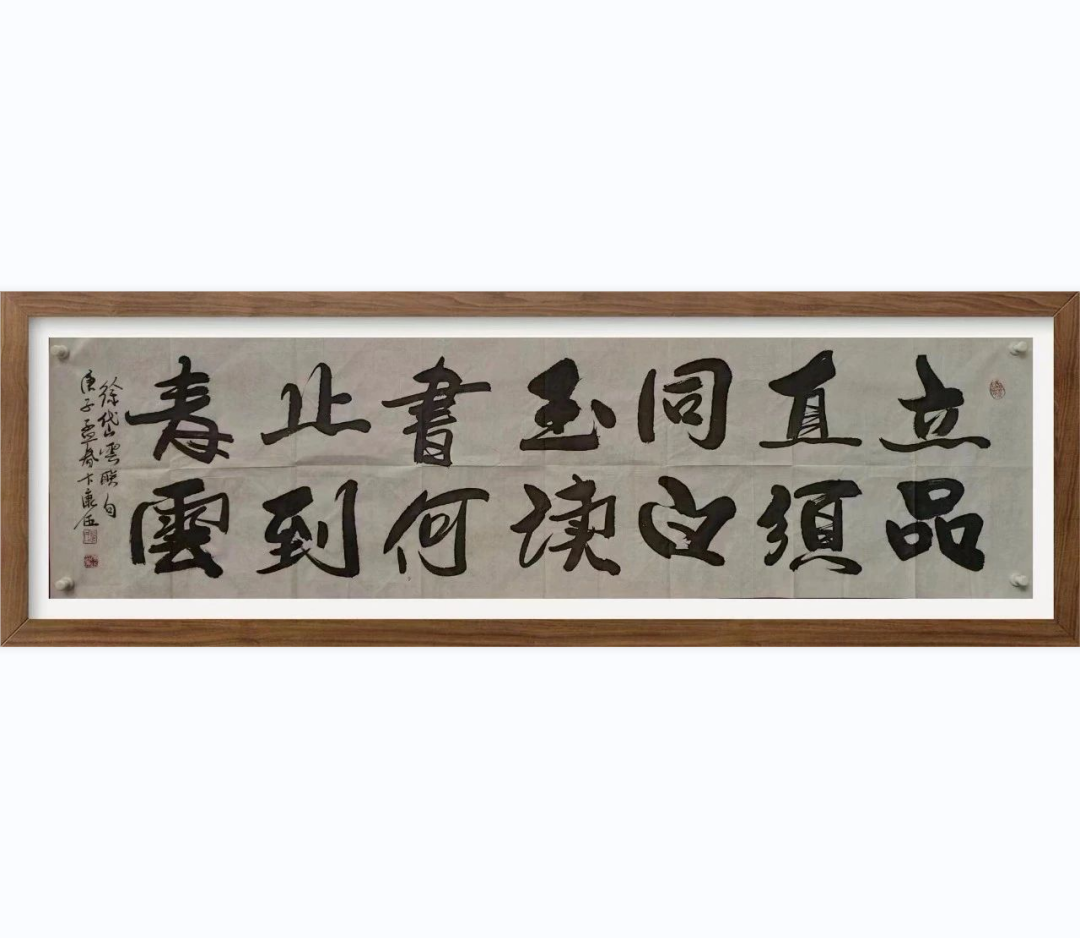 立品
直須
同白
玉读
書何
止到
青雲
徐岱雲聯句
庚子孟春卞康